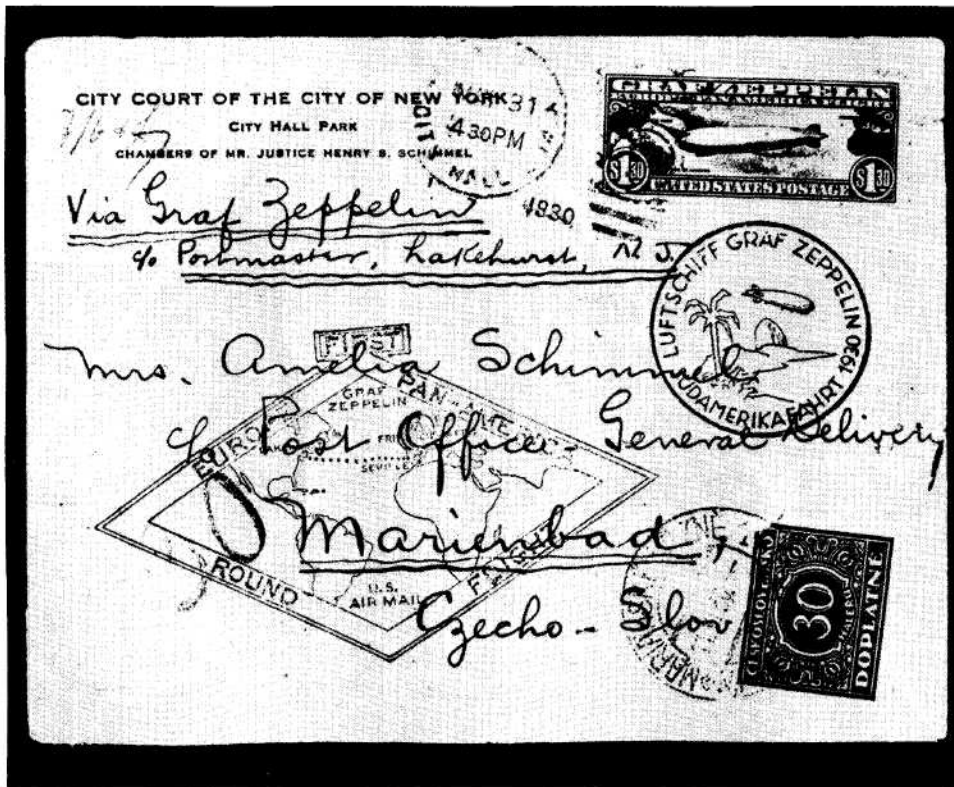 CITY COURT OF THE CITY OF NEW YORK
CITY HALL PARK
CHAMBERS OF MR. JUSTICE HENRY S. SCHIMMEL
31
4 30 PM
HALL
1930
GRAF ZEPPELIN
$1 30 $1 30
UNITED STATES POSTAGE
Via Graf Zeppelin
c/o Postmaster, Lakehurst, N. J.
LUFTSCHIFF GRAF ZEPPELIN
SÜDAMERIKAFAHRT 1930
Mrs. Amelia Schimmel
c/o Post Office - General Delivery
Marienbad
Czecho-Slov
FIRST
EUROPE PAN-AMERICA
GRAF
ZEPPELIN
SEVILLE
ROUND FLIGHT
U.S.
AIR MAIL
ČESKOSLOVENSKO
30
HALÉŘŮ
DOPLATNÉ